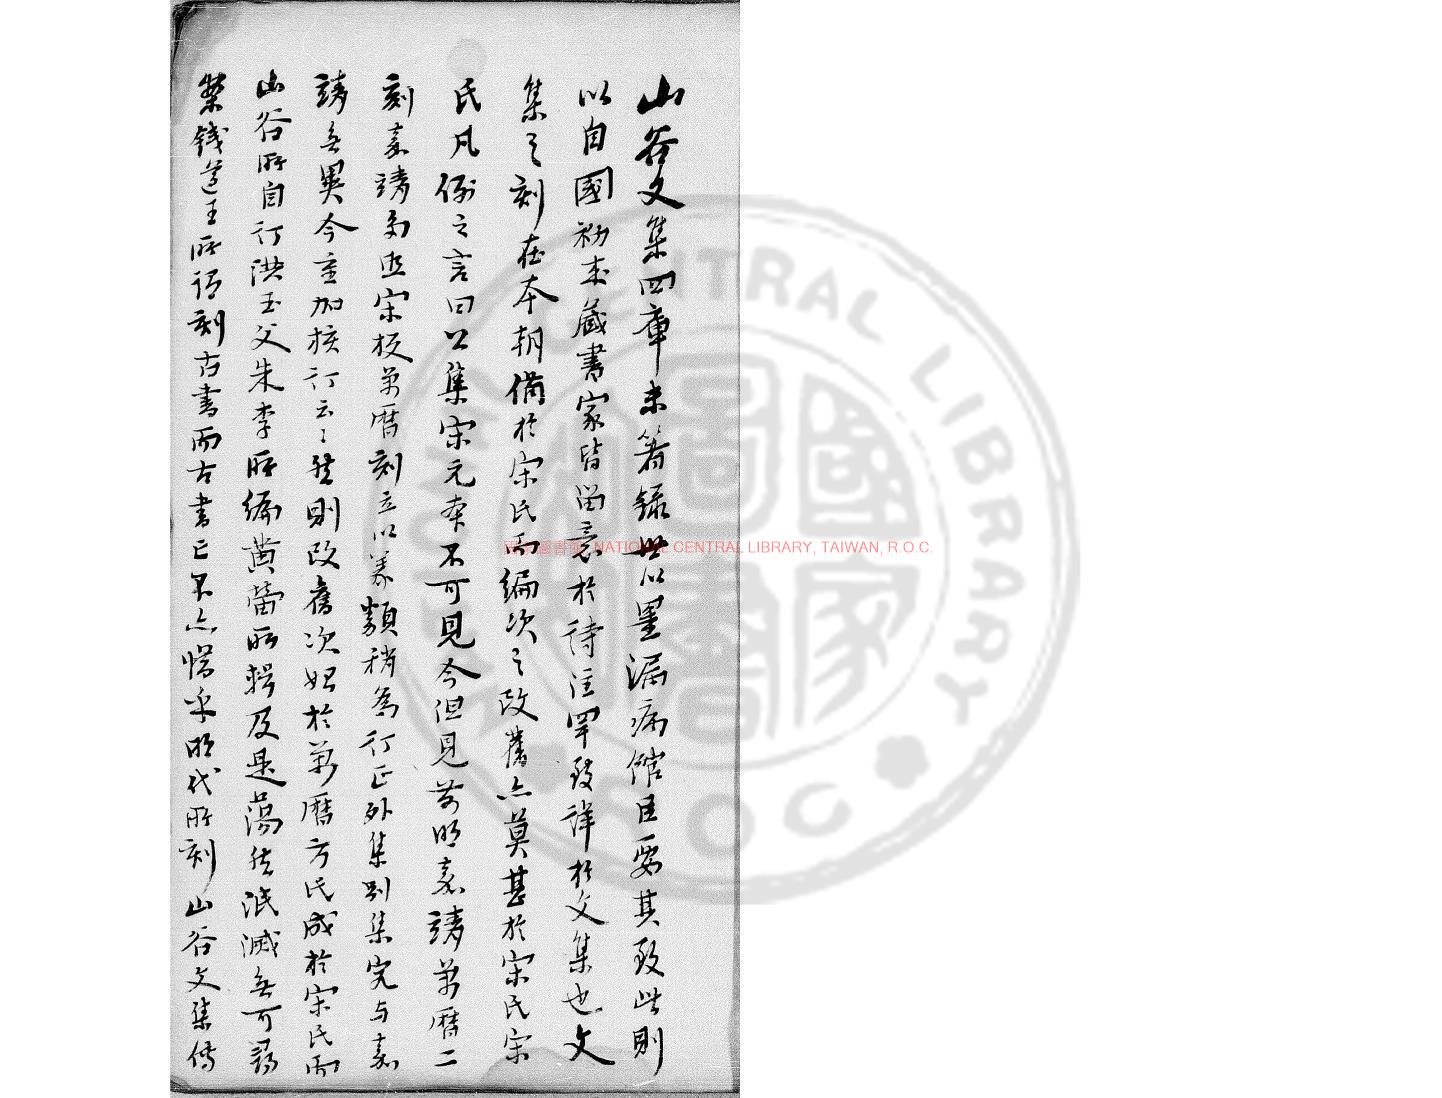 山谷文集四庫未著錄世以罣漏病館臣要其致此則
以自國初來藏書家皆留意於詩注罕致詳於文集也文
集之刻在本朝備於宋氏而編次之改舊亦莫甚於宋氏宋
氏凡例之言曰公集宋元本不可見今但見前明嘉靖萬曆二
刻嘉靖刻出宋板萬曆刻立以義類稍為訂正外集別集完与嘉
靖無異今重加核訂云々然則改舊次始於萬曆方氏成於宋氏而
山谷所自訂洪玉父朱李所編黄𤲞所輯及是蕩然泯滅無可尋
繫錢遵王所謂刻古書而古書亡不亦惜乎明代所刻山谷文集傳
國家圖書館 NATIONAL CENTRAL LIBRARY, TAIWAN, R.O.C.
NATIONAL CENTRAL LIBRARY
ROC
國家圖書